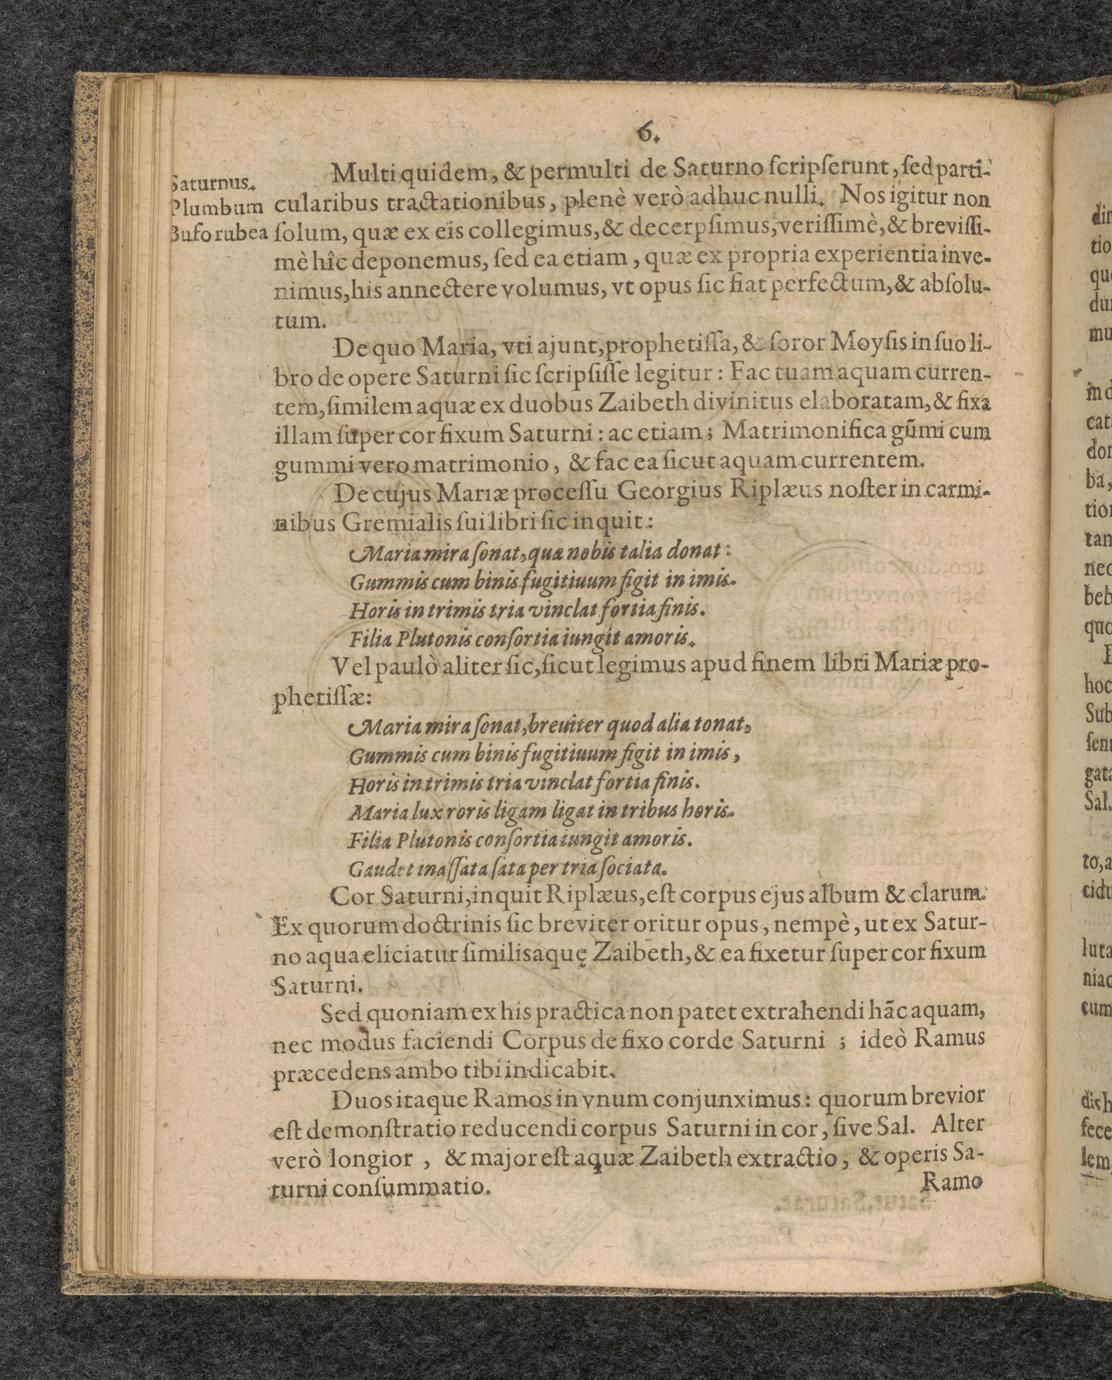 6.
Saturnus.
Plumbum
Bufo rubea
Multi quidem, & permulti de Saturno ſcripſerunt, ſed parti-
cularibus tractationibus, plenè verò adhuc nulli. Nos igitur non
ſolum, quæ ex eis collegimus, & decerpſimus, veriſſimè, & breviſſi-
mè hîc deponemus, ſed ea etiam, quæ ex propria experientia inve-
nimus, his annectere volumus, vt opus ſic fiat perfectum, & abſolu-
tum.
De quo Maria, vti ajunt, prophetiſſa, & ſoror Moyſis in ſuo li-
bro de opere Saturni ſic ſcripſiſſe legitur: Fac tuam aquam curren-
tem, ſimilem aquæ ex duobus Zaibeth divinitus elaboratam, & fixa
illam ſuper cor fixum Saturni: ac etiam; Matrimonifica gūmi cum
gummi vero matrimonio, & fac ea ſicut aquam currentem.
De cujus Mariæ proceſſu Georgius Riplæus noſter in carmi-
nibus Gremialis ſui libri ſic inquit:
Maria mira ſonat, quæ nobis talia donat:
Gummis cum binis fugitiuum figit in imis.
Horis in trimis tria vinclat fortia finis.
Filia Plutonis conſortia iungit amoris.
Vel paulò aliter ſic, ſicut legimus apud finem libri Mariæ pro-
phetiſſæ:
Maria mira ſonat, breuiter quod alia tonat,
Gummis cum binis fugitiuum figit in imis,
Horis in trimis tria vinclat fortia finis.
Maria lux roris ligam ligat in tribus horis.
Filia Plutonis conſortia iungit amoris.
Gaudet inaſſata ſata per tria ſociata.
Cor Saturni, inquit Riplæus, eſt corpus ejus album & clarum.
Ex quorum doctrinis ſic breviter oritur opus, nempè, ut ex Satur-
no aqua eliciatur ſimilis aquę Zaibeth, & ea fixetur ſuper cor fixum
Saturni.
Sed quoniam ex his practica non patet extrahendi hãc aquam,
nec modus faciendi Corpus de fixo corde Saturni ; ideò Ramus
præcedens ambo tibi indicabit.
Duos itaque Ramos in vnum conjunximus: quorum brevior
eſt demonſtratio reducendi corpus Saturni in cor, ſive Sal. Alter
verò longior , & major eſt aquæ Zaibeth extractio, & operis Sa-
turni conſummatio.
Ramo